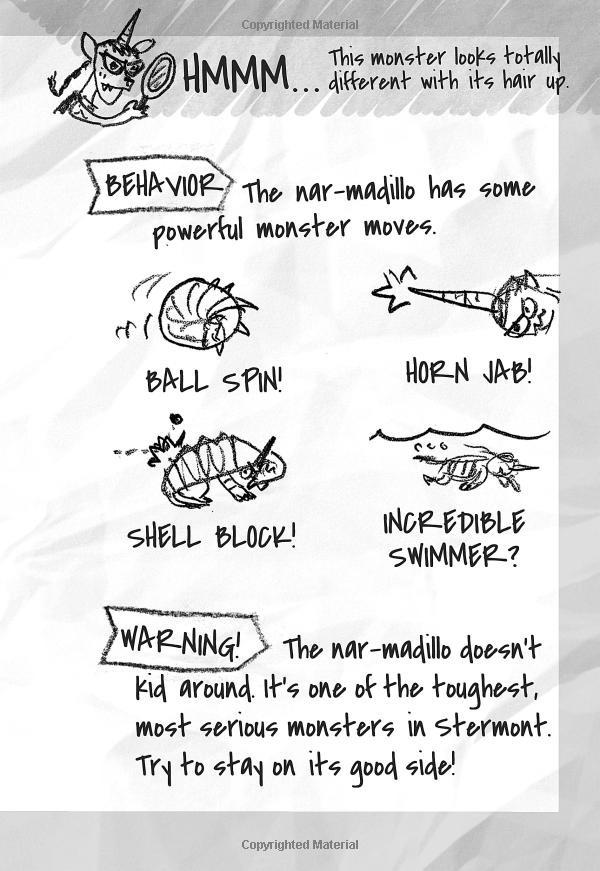 Copyrighted Material
HMMM... This monster looks totally
different with its hair up.
BEHAVIOR The nar-madillo has some
powerful monster moves.
BALL SPIN!
HORN JAB!
SHELL BLOCK!
INCREDIBLE
SWIMMER?
WARNING! The nar-madillo doesn't
kid around. It's one of the toughest,
most serious monsters in Stermont.
Try to stay on its good side!
Copyrighted Material